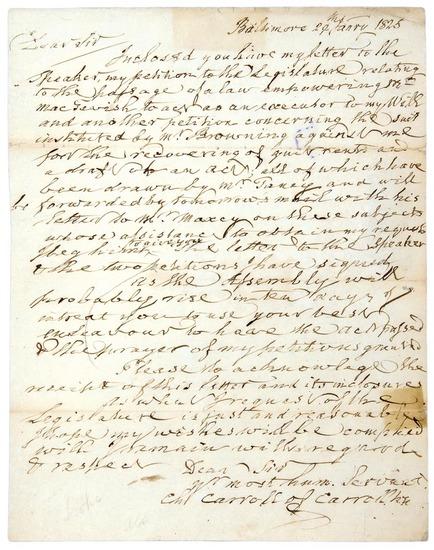 Baltimore 29th Janry 1825
Dear Sir
Inclosed you have my letter to the
Speaker, my petition to the Legislature relating
to the passage of a law empowering Mr
MacTavish to act as an executor to my Will
and another petition concerning the suit
instituted by Mr Browning against me
for the recovering of quit rents and
a draft of an act, all of which have
been drawn by Mr Taney and will
be forwarded by tomorrows mail with his
letter to Mr Maxcy on these subjects
whose assistance to obtain my request
I beg him to give you The letter to the Speaker
& the two petitions I have signed
As the Assembly will
probably rise in ten days I
intreat you to use your best
endeavour to have the act passed
& the prayer of my petitions granted
Please to acknowledge the
receipt of this letter and its inclosures
As what I request of the
Legislature is just and reasonable
I hope my wishes will be complied
with I remain with regard
& respect
Dear Sir
Yr most hum. Servant
Ch Carroll of Carrollton